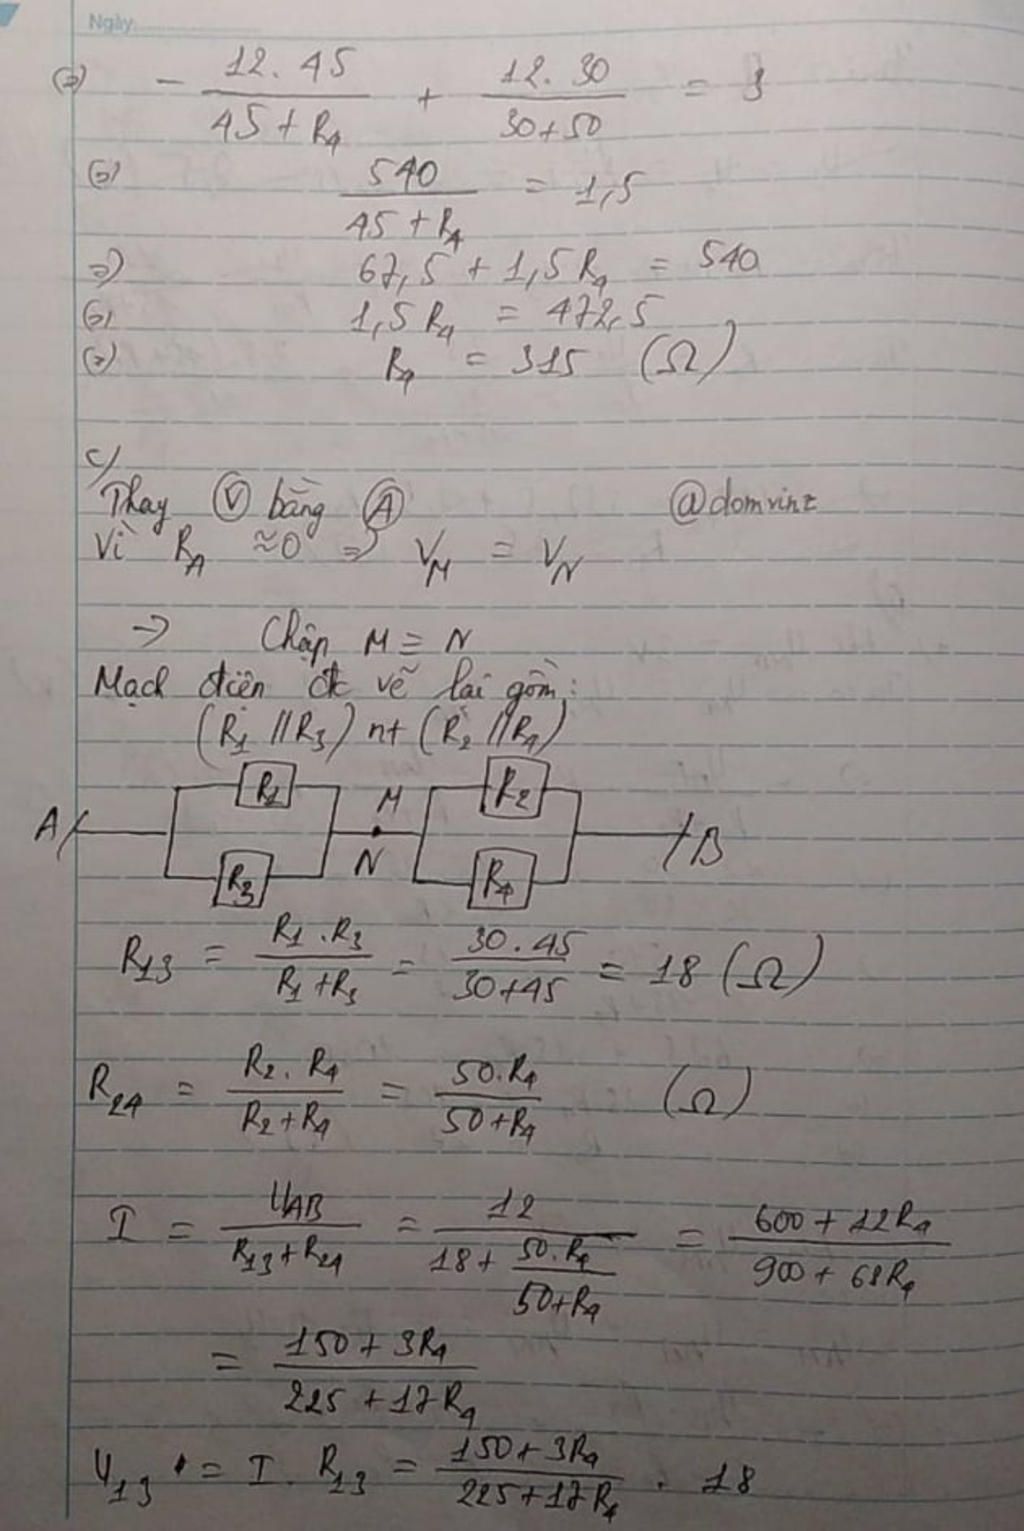 Ngày
(=) - 12.45 / (45 + R4) + 12.30 / (30+50) = 3
(=) 540 / (45 + R4) = 1,5
=) 67,5 + 1,5 R4 = 540
(=) 1,5 R4 = 472,5
(=) R4 = 315 (Ω)
c/
Thay Ⓥ bằng Ⓐ @domvinz
Vì RA ≈0 => VM = VN
-> Chập M ≡ N
Mạch điện đc vẽ lại gồm:
(R1 // R3) nt (R2 // R4)
R1 M R2
A N B
R3 R4
R13 = R1 . R3 / (R1 + R3) = 30 . 45 / (30+45) = 18 (Ω)
R24 = R2 . R4 / (R2 + R4) = 50.R4 / (50+R4) (Ω)
I = UAB / (R13 + R24) = 12 / (18 + 50.R4 / (50+R4)) = (600 + 12R4) / (900 + 68R4)
= (150 + 3R4) / (225 + 17R4)
U13 = I . R13 = (150 + 3R4) / (225 + 17R4) . 18